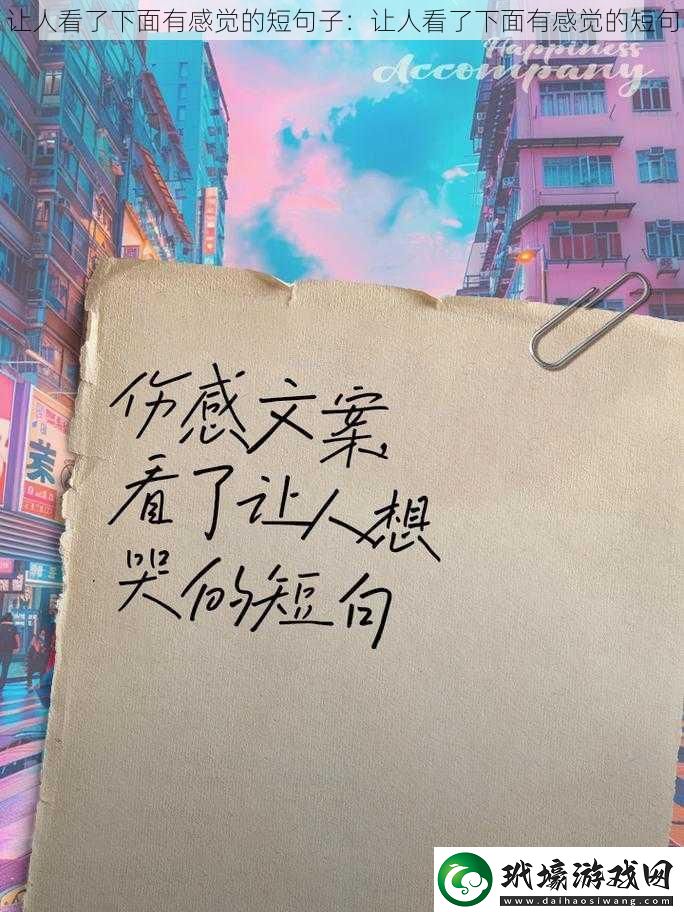 让人看了下面有感觉的短句子：让人看了下面有感觉的短句
Happiness
Accompany
伤感文案,
看了让人想
哭的短句
玳壕游戏网
www.daihaosiwang.com